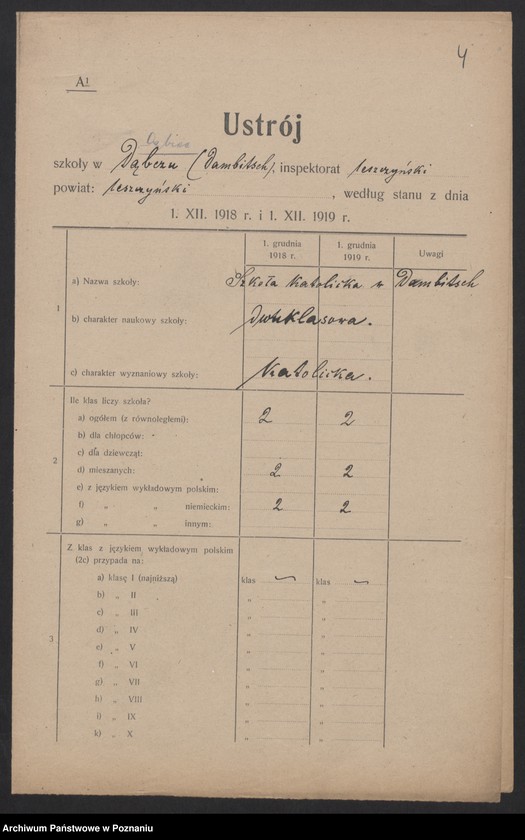 4
A1
Ustrój
Dąbicz
szkoły w Dąbczu (Dambitsch), inspektorat leszczyński
powiat: leszczyński, według stanu z dnia
1. XII. 1918 r. i 1. XII. 1919 r.
1. grudnia 1918 r. 1. grudnia 1919 r. Uwagi
1
a) Nazwa szkoły: Szkoła Katolicka w Dambitsch
b) charakter naukowy szkoły: dwuklasowa.
c) charakter wyznaniowy szkoły: Katolicka.
2
Ile klas liczy szkoła?
a) ogółem (z równoległemi): 2 2
b) dla chłopców:
c) dla dziewcząt:
d) mieszanych: 2 2
e) z językiem wykładowym polskim:
f) „ „ niemieckim: 2 2
g) „ „ innym:
3
Z klas z językiem wykładowym polskim
(2c) przypada na:
a) klasę I (najniższą) klas — klas —
b) „ II „ „
c) „ III „ „
d) „ IV „ „
e) „ V „ „
f) „ VI „ „
g) „ VII „ „
h) „ VIII „ „
i) „ IX „ „
k) „ X „ „
Archiwum Państwowe w Poznaniu